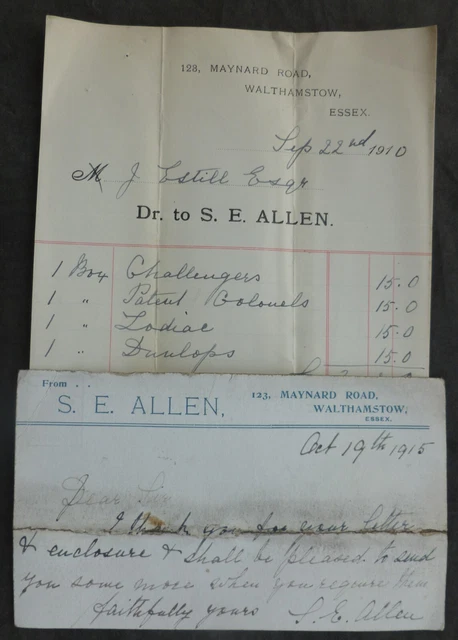 123, MAYNARD ROAD,
WALTHAMSTOW,
ESSEX.
Sep 22nd 1910
M J Estill Esqr
Dr. to S. E. ALLEN.
1 Box Challengers 15.0
1 " Patent Colonels 15.0
1 " Zodiac 15.0
1 " Dunlops 15.0
From . .
S. E. ALLEN,
123, MAYNARD ROAD,
WALTHAMSTOW,
ESSEX.
Oct 19th 1915
Dear Sir
I thank you for your letter
& enclosure & shall be pleased to send
you some more when you require them
faithfully yours S. E. Allen